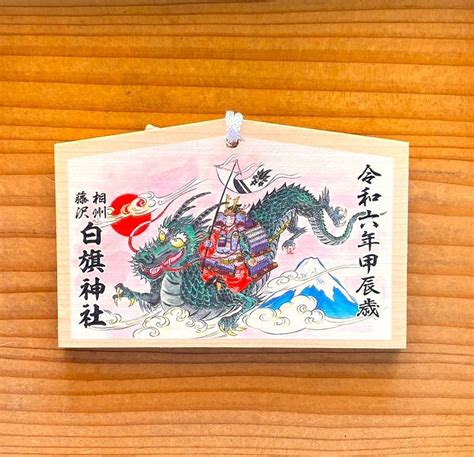 令和六年甲辰歳
相州
藤沢
白旗神社